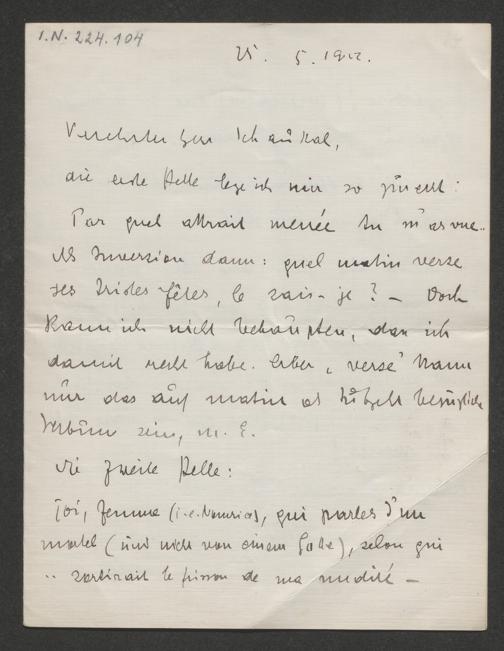 I.N. 224.104
25. 5. 1912.
Verehrter Herr Schaukal,
die erste Stelle lege ich mir so zurecht:
Par quel attrait menée tu m'as vue..
Als Inversion dann: quel matin verse
ses tristes fêtes, le sais-je? – Doch
kann ich nicht behaupten, daß ich
damit recht habe. Aber „verse" kann
nur das auf matin als Subjekt bezügliche
Verbum sein, m. E.
Die zweite Stelle:
Toi, femme (i.e. Nourrice), qui parles d'un
mortel (und nicht von einem Gotte), selon qui
.. sortirait le frisson de ma nudité –